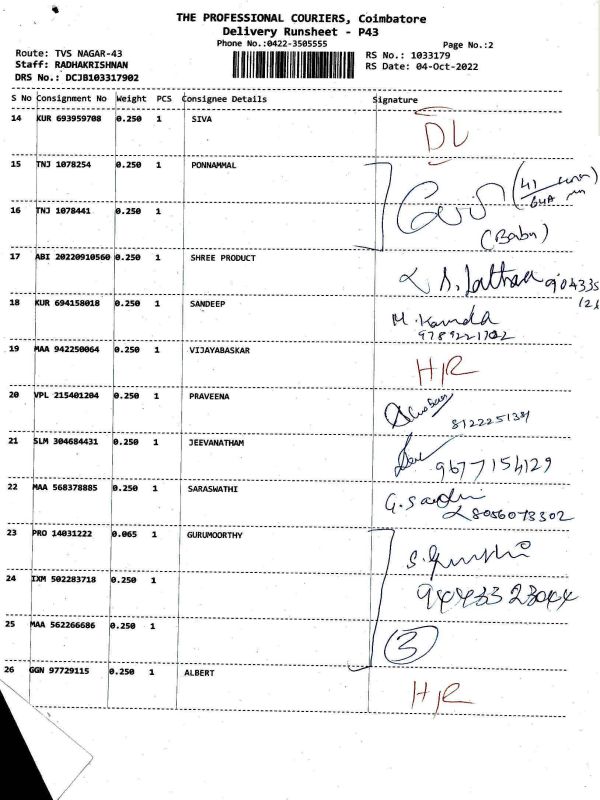 THE PROFESSIONAL COURIERS, Coimbatore
Delivery Runsheet - P43
Phone No.:0422-3505555
Page No.:2
Route: TVS NAGAR-43
RS No.: 1033179
Staff: RADHAKRISHNAN
RS Date: 04-Oct-2022
DRS No.: DCJB103317902
S No Consignment No Weight PCS Consignee Details Signature
14 KUR 693959708 0.250 1 SIVA DL
15 TNJ 1078254 0.250 1 PONNAMMAL
16 TNJ 1078441 0.250 1 (Babu)
17 ABI 20220910560 0.250 1 SHREE PRODUCT
18 KUR 694158018 0.250 1 SANDEEP
19 MAA 942250064 0.250 1 VIJAYABASKAR H/R
20 VPL 215401204 0.250 1 PRAVEENA
21 SLM 304684431 0.250 1 JEEVANATHAM 9677154129
22 MAA 568378885 0.250 1 SARASWATHI 8056073302
23 PRO 14031222 0.065 1 GURUMOORTHY
24 IXM 502283718 0.250 1 9443323044
25 MAA 562266686 0.250 1 3
26 GGN 97729115 0.250 1 ALBERT H/R